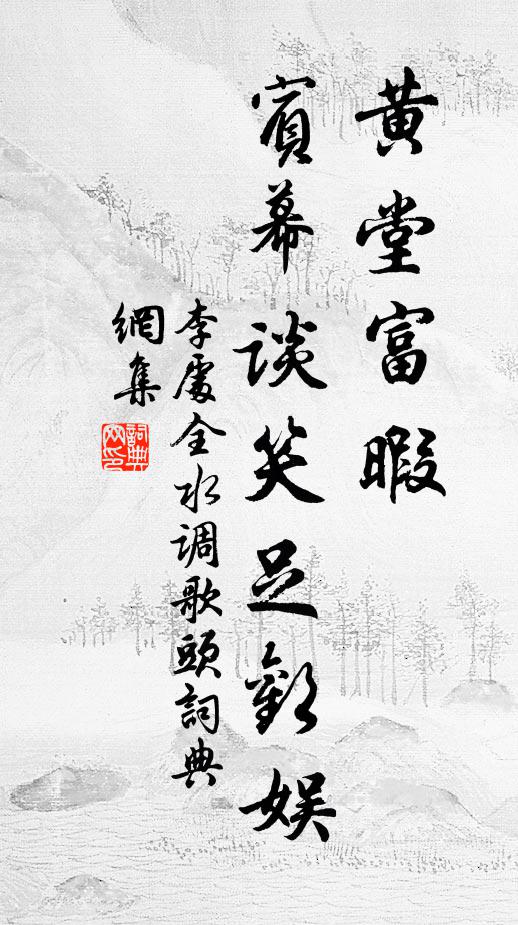 黄堂富暇
賓幕談笑足歡娱
李處全水调歌頭詞典
網集
詞典網印